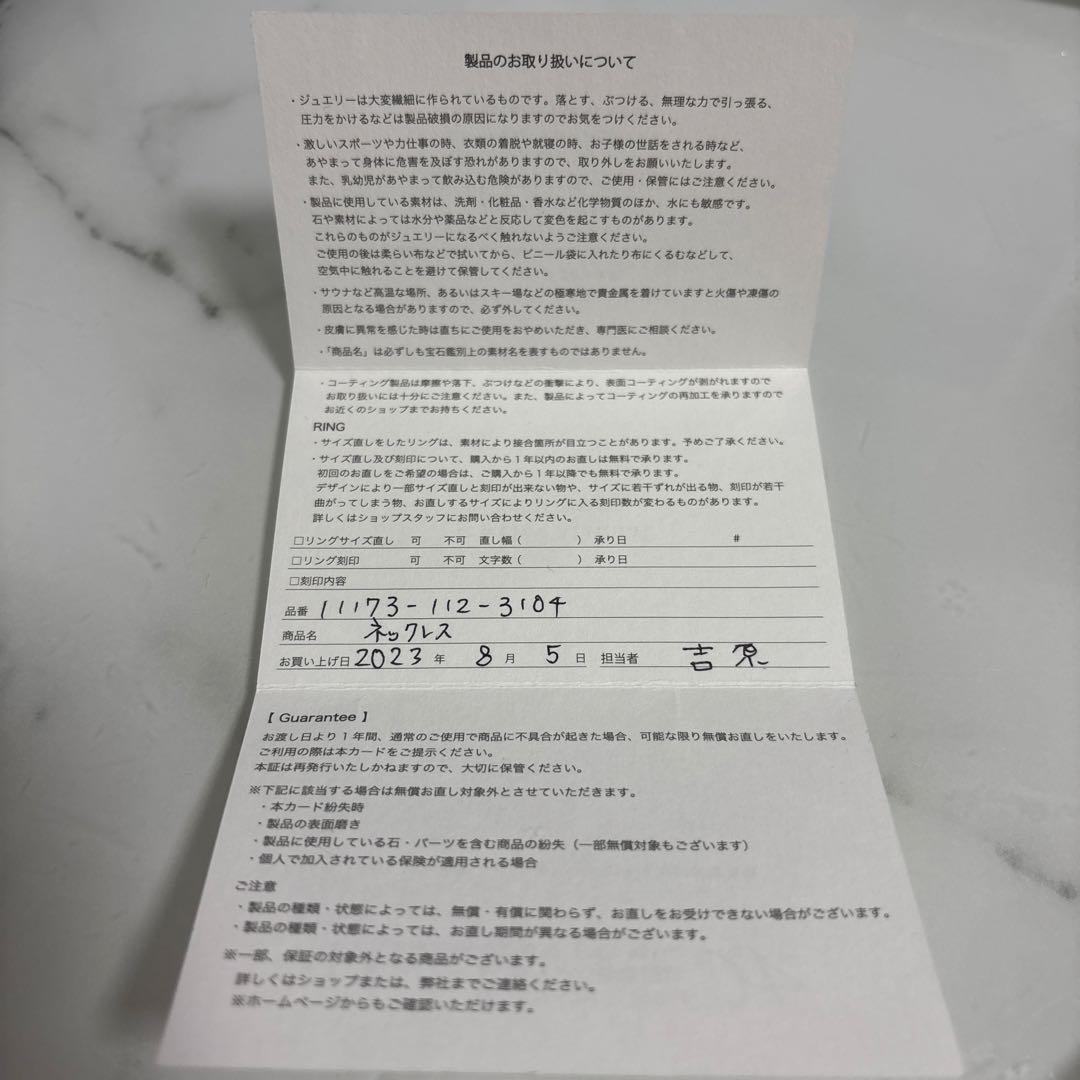 製品のお取り扱いについて
・ジュエリーは大変繊細に作られているものです。落とす、ぶつける、無理な力で引っ張る、
圧力をかけるなどは製品破損の原因になりますのでお気をつけください。
・激しいスポーツや力仕事の時、衣類の着脱や就寝の時、お子様の世話をされる時など、
あやまって身体に危害を及ぼす恐れがありますので、取り外しをお願いいたします。
また、乳幼児があやまって飲み込む危険がありますので、ご使用・保管にはご注意ください。
・製品に使用している素材は、洗剤・化粧品・香水など化学物質のほか、水にも敏感です。
石や素材によっては水分や薬品などと反応して変色を起こすものがあります。
これらのものがジュエリーになるべく触れないようご注意ください。
ご使用の後は柔らい布などで拭いてから、ビニール袋に入れたり布にくるむなどして、
空気中に触れることを避けて保管してください。
・サウナなど高温な場所、あるいはスキー場などの極寒地で貴金属を着けていますと火傷や凍傷の
原因となる場合がありますので、必ず外してください。
・皮膚に異常を感じた時は直ちにご使用をおやめいただき、専門医にご相談ください。
・「商品名」は必ずしも宝石鑑別上の素材名を表すものではありません。
・コーティング製品は摩擦や落下、ぶつけなどの衝撃により、表面コーティングが剥がれますので
お取り扱いには十分にご注意ください。また、製品によってコーティングの再加工を承りますので
お近くのショップまでお持ちください。
RING
・サイズ直しをしたリングは、素材により接合箇所が目立つことがあります。予めご了承ください。
・サイズ直し及び刻印について、購入から1年以内のお直しは無料で承ります。
初回のお直しをご希望の場合は、ご購入から1年以降でも無料で承ります。
デザインにより一部サイズ直しと刻印が出来ない物や、サイズに若干ずれが出る物、刻印が若干
曲がってしまう物、お直しするサイズによりリングに入る刻印数が変わるものがあります。
詳しくはショップスタッフにお問い合わせください。
□リングサイズ直し 可 不可 直し幅（ ） 承り日 #
□リング刻印 可 不可 文字数（ ） 承り日
□刻印内容
品番 11173-112-3104
商品名 ネックレス
お買い上げ日 2023 年 8 月 5 日 担当者 吉原
【 Guarantee 】
お渡し日より1年間、通常のご使用で商品に不具合が起きた場合、可能な限り無償お直しをいたします。
ご利用の際は本カードをご提示ください。
本証は再発行いたしかねますので、大切に保管ください。
※下記に該当する場合は無償お直し対象外とさせていただきます。
・本カード紛失時
・製品の表面磨き
・製品に使用している石・パーツを含む商品の紛失（一部無償対象もございます）
・個人で加入されている保険が適用される場合
ご注意
・製品の種類・状態によっては、無償・有償に関わらず、お直しをお受けできない場合がございます。
・製品の種類・状態によっては、お直し期間が異なる場合がございます。
※一部、保証の対象外となる商品がございます。
詳しくはショップまたは、弊社までご連絡ください。
※ホームページからもご確認いただけます。